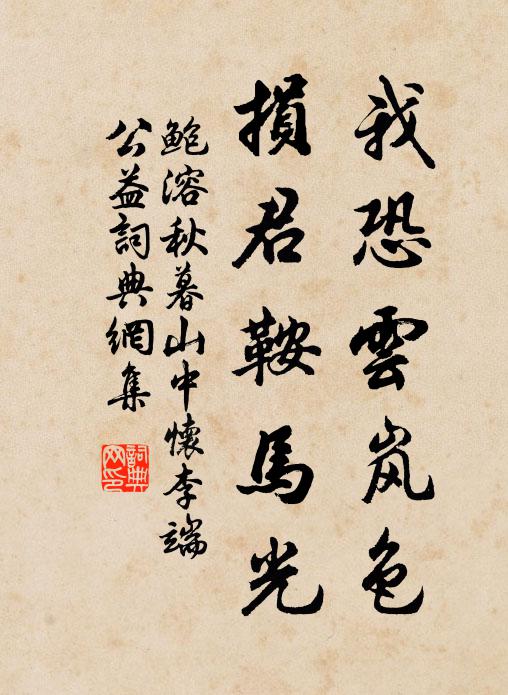 我恐雲岚色
損君鞍馬光
鮑溶秋暮山中懷李端
公益詞典網集
詞典
网印